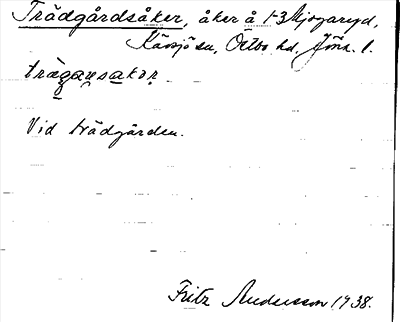 Trädgårdsåker, åker å 1-3 Mjogaryd,
Kävsjö sn, Östbo hd, Jönk. l.
trägansakər
Vid trädgården.
Fritz Andersson 1938.